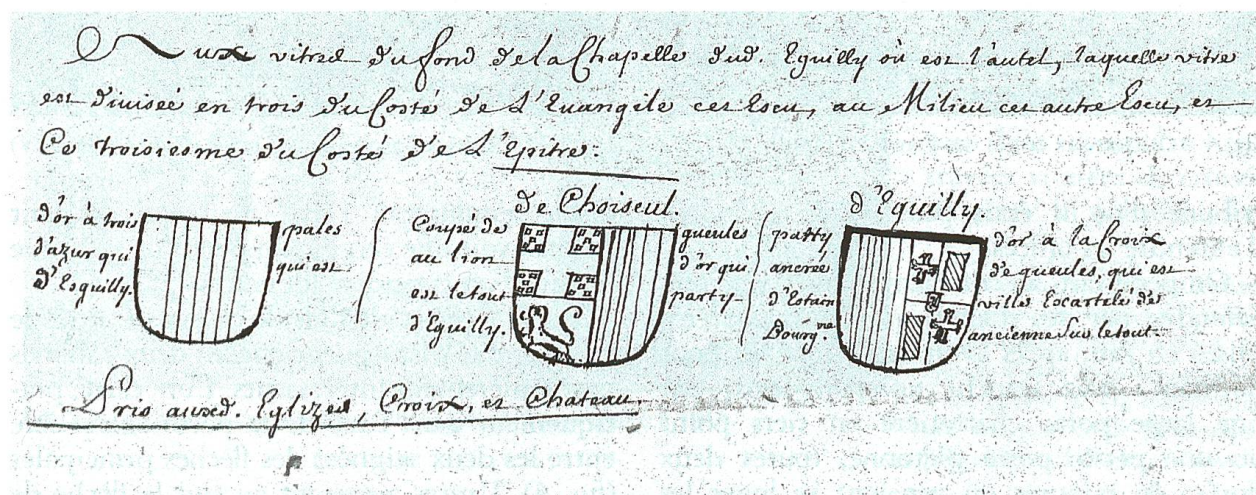 Aux vitres du fond de la Chapelle dud. Eguilly où est l'autel, laquelle vitre
est diviseé en trois du Costé de L'Euangile cet Escu, au Milieu cet autre Escu, et
Ce troisiesme du Costé de L'Epitre:
d'or à trois pales
d'azur qui qui est
d'Esguilly.
de Choiseul.
Coupé de gueules
au lion d'or qui
est le tout party
d'Equilly.
d'Equilly.
partty d'or à la Croix
ancreé de gueules, qui est
d'Estain ville Escartelé de
Bourgne ancienne sur le tout.
Pris auxd. Eglizes, Croix, et Chateau.